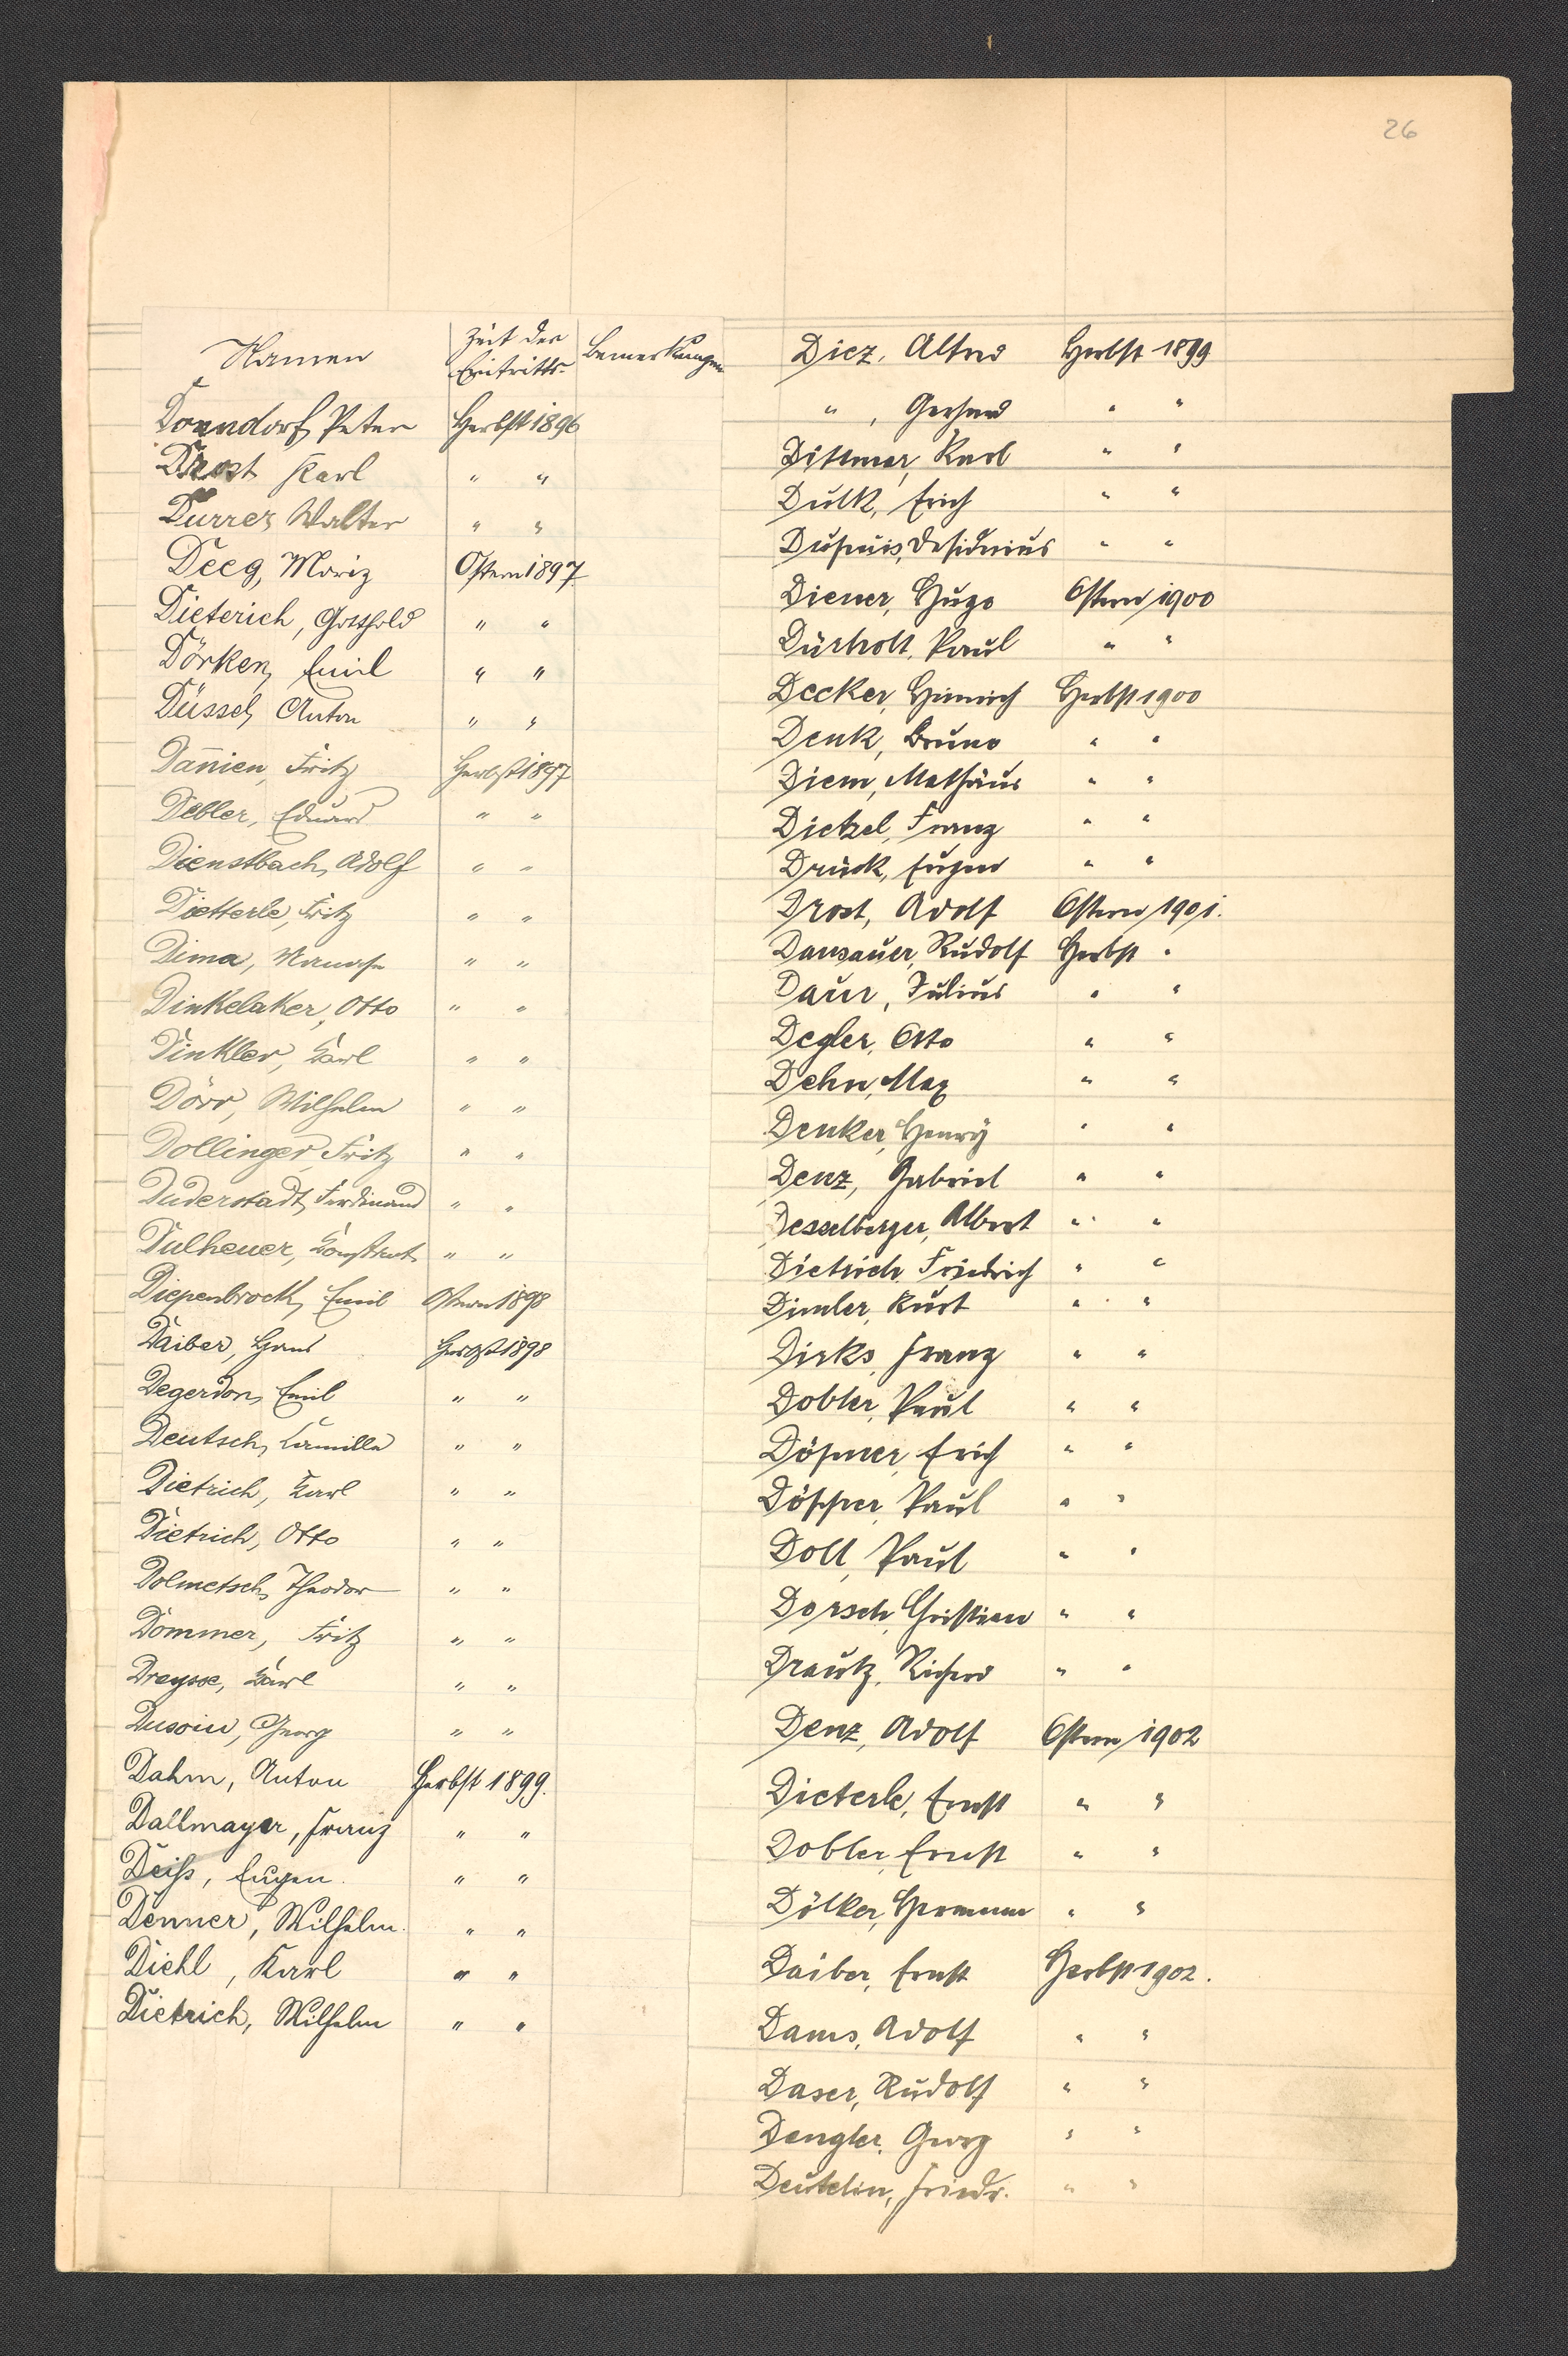 26
Namen Zeit des Eintritts. Bemerkungen
Donndorf, Peter Herbst 1896
Drost Karl " "
Durrer Walter " "
Deeg, Moriz Ostern 1897
Dieterich, Gotthold " "
Dörken, Emil " "
Düssel, Anton " "
Dannien, Fritz Herbst 1897
Debler, Eduard " "
Dienstbach, Adolf " "
Dietterle, Fritz " "
Dima, " "
Dinkelaker, Otto " "
Dinkler, Karl " "
Dörr, Wilhelm " "
Dollinger, Fritz " "
Duderstadt, Ferdinand " "
Dulheuer, " "
Diepenbrock, Emil Ostern 1898
Daiber, Hans Herbst 1898
Degerdon, Emil " "
Deutsch, Camilla " "
Dietrich, Karl " "
Dietrich, Otto " "
Dolmetsch, Theodor " "
Dommer, Fritz " "
Dreysse, Karl " "
Dusoin, Georg " "
Dahm, Anton Herbst 1899.
Dallmayer, Franz " "
Deiß, Eugen. " "
Denner, Wilhelm. " "
Diehl, Karl " "
Dietrich, Wilhelm " "
Diez, Alfred Herbst 1899
" , Gerhard " "
Dittmar, Karl " "
Dulk, Erich " "
Dupuis, Desiderius " "
Diener, Hugo Ostern 1900
Dürholt, Paul " "
Decker, Heinrich Herbst 1900
Denk, Bruno " "
Diem, Mathäus " "
Dietzel, Franz " "
Drück, Eugen " "
Drost, Adolf Ostern 1901.
Dansauer, Rudolf Herbst "
Daur, Julius " "
Degler, Otto " "
Dehn, Max " "
Denker, Henry " "
Denz, Gabriel " "
Desselberger, Albert " "
Dietrich, Friedrich " "
Dimler, Kurt " "
Dirks, Franz " "
Dobler, Paul " "
Döpner, Erich " "
Döpper, Paul " "
Doll, Paul " "
Dorsch, Christian " "
Drautz, Richard " "
Denz, Adolf Ostern 1902
Dieterle, Ernst " "
Dobler, Ernst " "
Dölker, Hermann " "
Daiber, Ernst Herbst 1902.
Dams, Adolf " "
Daser, Rudolf " "
Dengler, Georg " "
Deutelin, Friedr. " "